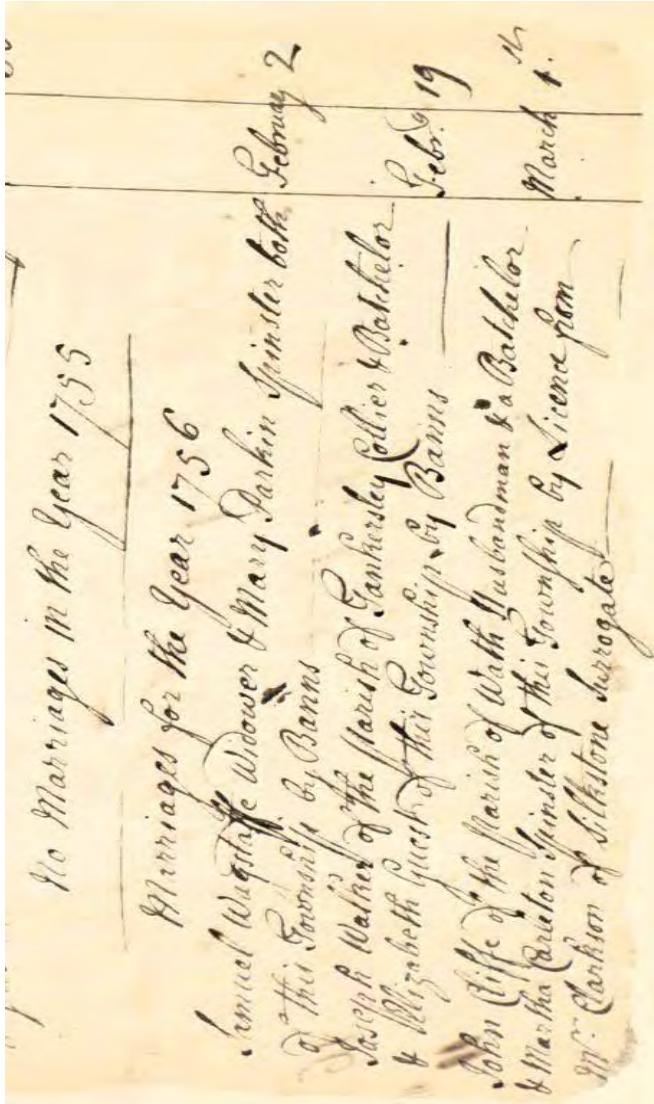 No Marriages in the Year 1755
Marriages for the Year 1756
Samuel Wagstaffe Widower & Mary Parkin Spinster both February 2
of this Township by Banns
Joseph Walker of the Parish of Tankersley Collier & Batchelor Febry 19
& Elizabeth Guest of this Township by Banns
John Cliffe of the Parish of Wath Husbandman & a Batchelor March 1st
& Martha Carleton Spinster of this Township by Licence from
Mr Clarkson of Silkstone Surrogate